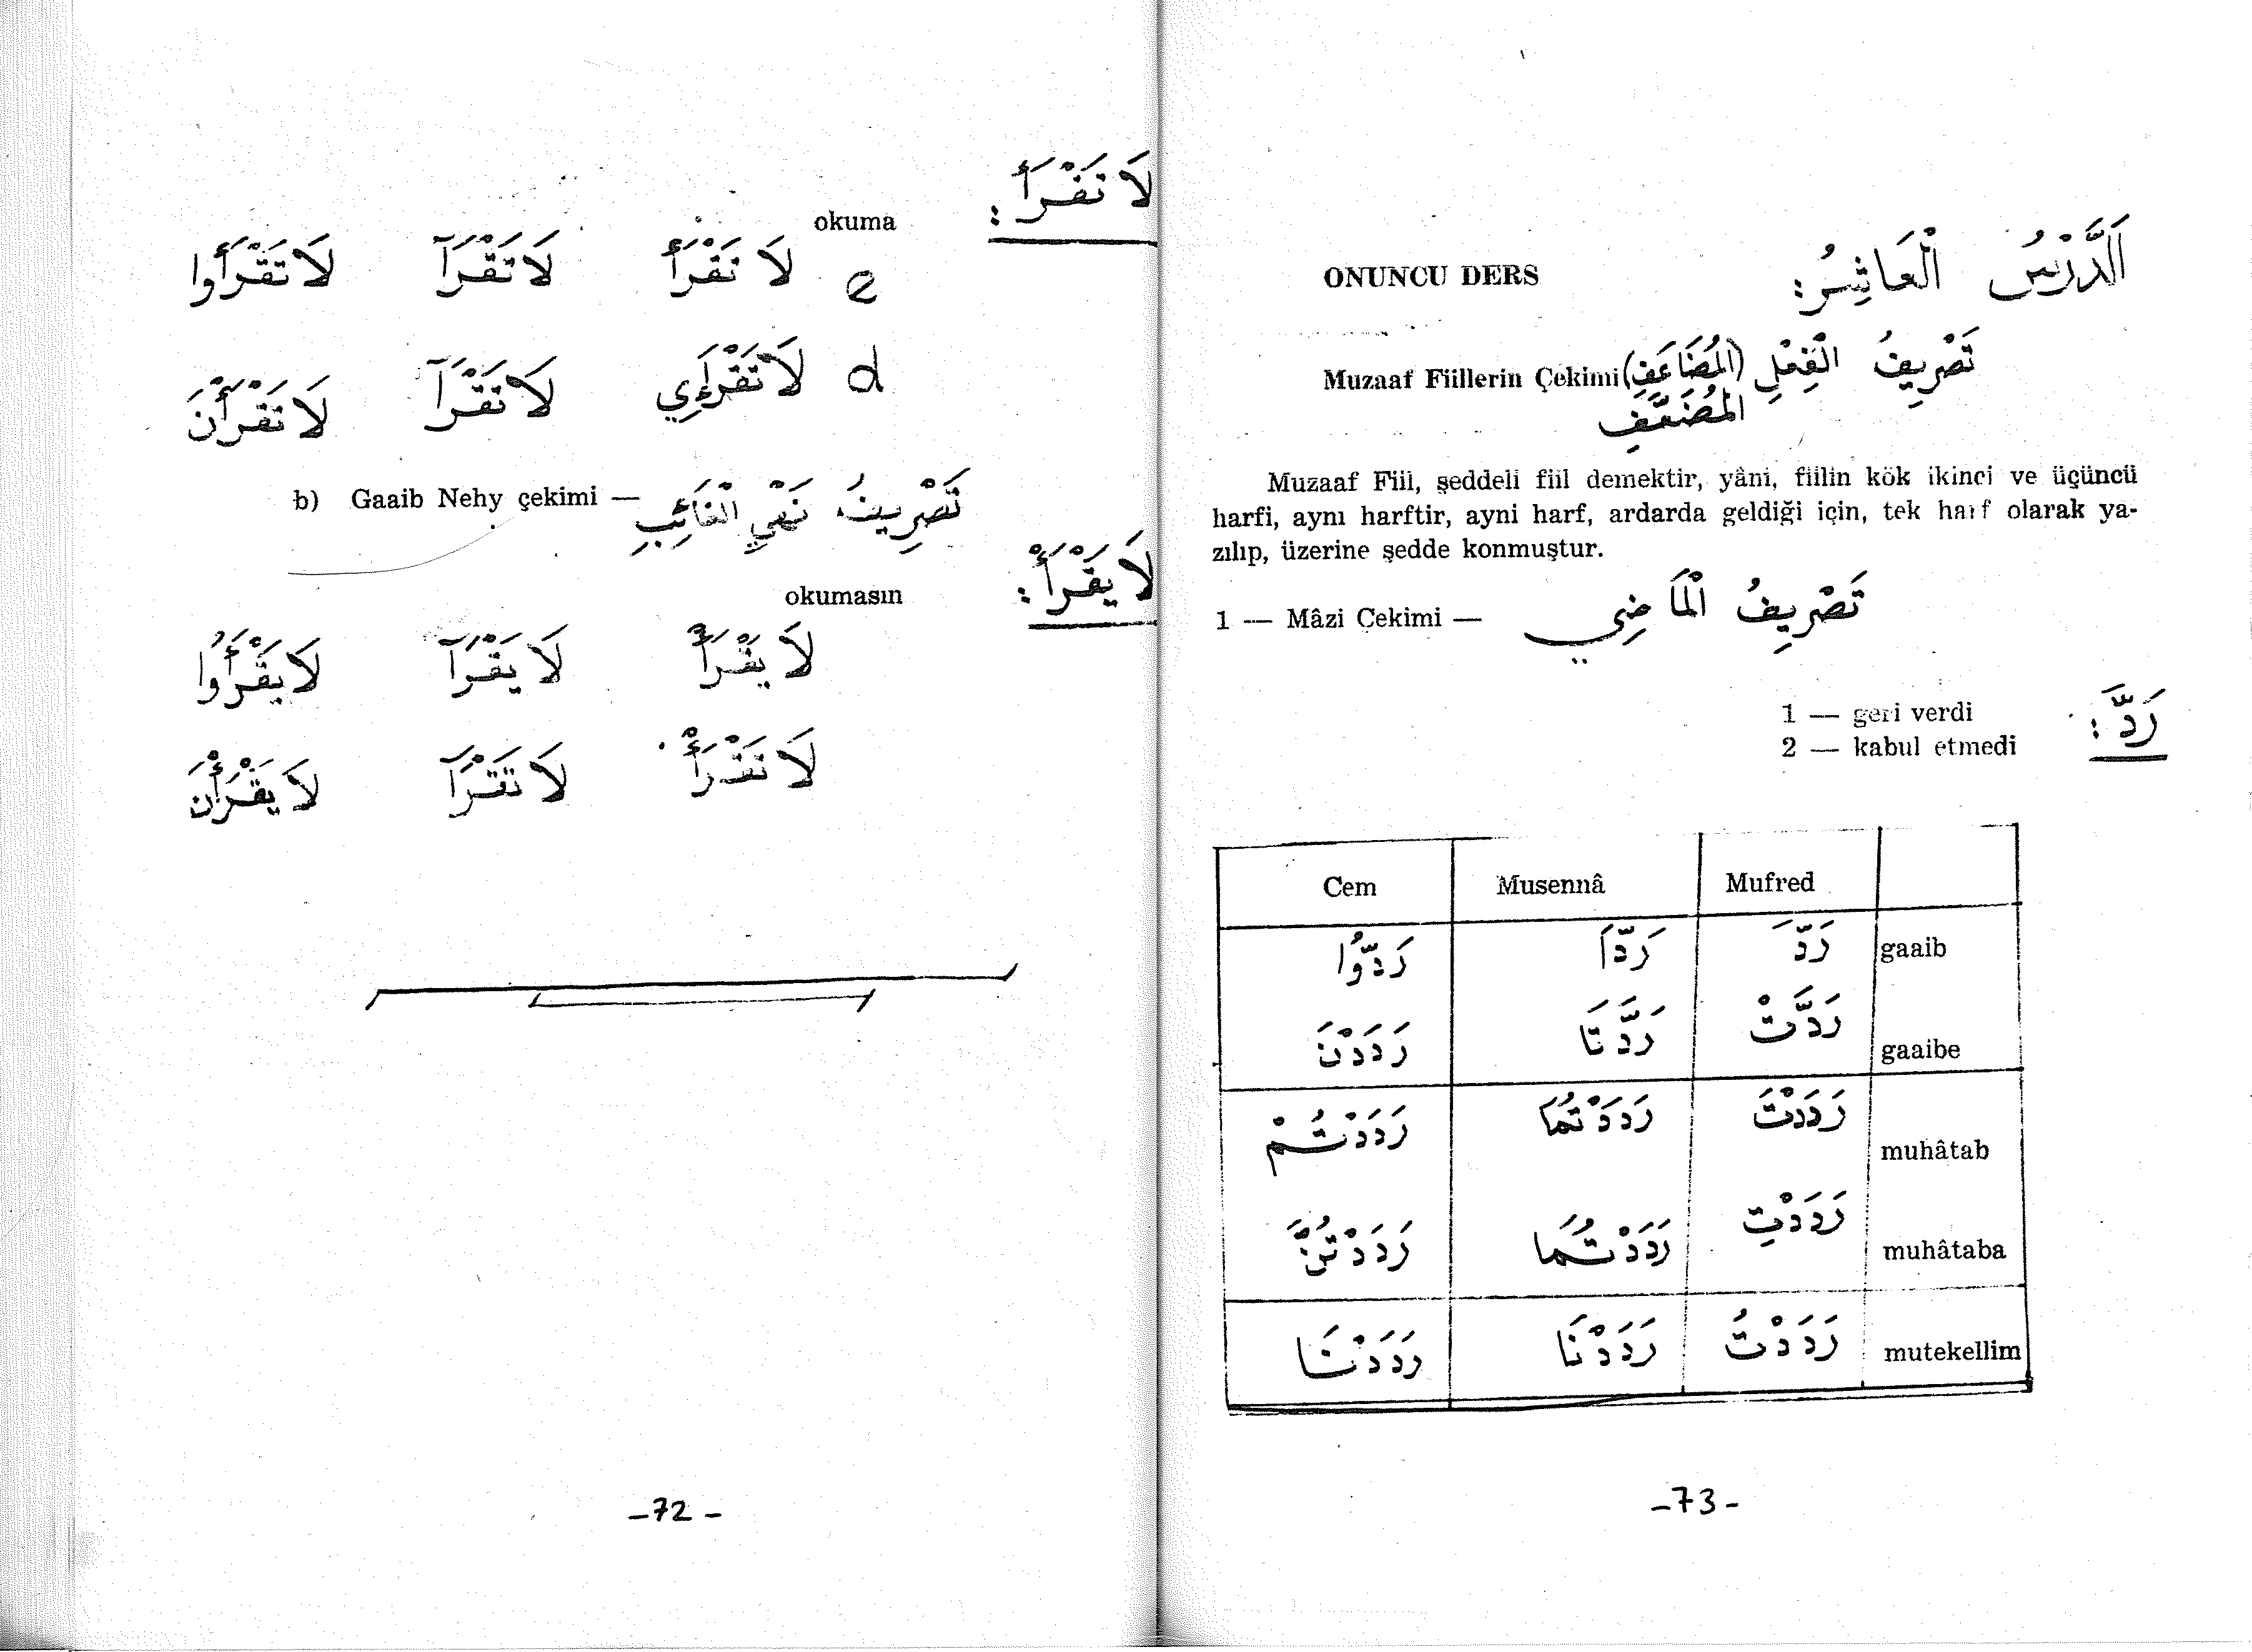 لَا تَقْرَأْ :
okuma
لَا تَقْرَأْ لَا تَقْرَآ لَا تَقْرَأُوا
e
d لَا تَقْرَإِي لَا تَقْرَآ لَا تَقْرَأْنَ
b) Gaaib Nehy çekimi — تَصْرِيفُ نَهْيِ الْغَائِبِ
لَا يَقْرَأْ :
okumasın
لَا يَقْرَأْ لَا يَقْرَآ لَا يَقْرَأُوا
لَا تَقْرَأْ لَا تَقْرَآ لَا يَقْرَأْنَ
-72-
ONUNCU DERS اَلدَّرْسُ الْعَاشِرُ :
Muzaaf Fiillerin Çekimi تَصْرِيفُ الْفِعْلِ (الْمُضَاعَفِ)
الْمُضَعَّفِ
Muzaaf Fiil, şeddeli fiil demektir, yâni, fiilin kök ikinci ve üçüncü
harfi, aynı harftir, ayni harf, ardarda geldiği için, tek harf olarak ya-
zılıp, üzerine şedde konmuştur.
1 — Mâzi Çekimi — تَصْرِيفُ الْمَاضِي
رَدَّ :
1 — geri verdi
2 — kabul etmedi
Cem Musennâ Mufred
رَدُّوا رَدَّا رَدَّ gaaib
رَدَدْنَ رَدَّتَا رَدَّتْ gaaibe
رَدَدْتُمْ رَدَدْتُمَا رَدَدْتَ muhâtab
رَدَدْتُنَّ رَدَدْتُمَا رَدَدْتِ muhâtaba
رَدَدْنَا رَدَدْنَا رَدَدْتُ mutekellim
-73-